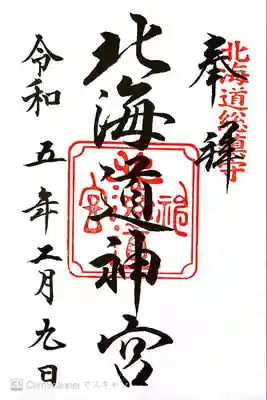 北海道総鎮守
奉拝
北海道神宮
令和五年二月九日
CS CamScannerでスキャン